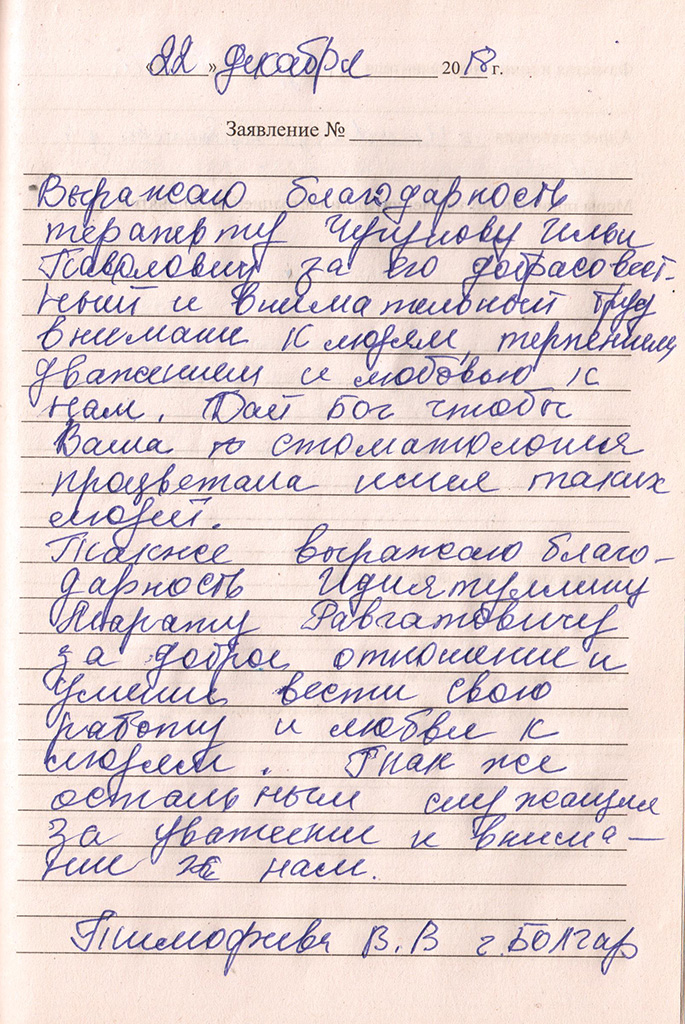 «22» декабря 2018 г.
Заявление №
Выражаю благодарность
терапевту Чугунову Ильи
Павловичу за его добрасовест-
ный и внимательный труд
внимание к людям, терпением
уважением и любовью к
нам. Дай Бог чтобы
Ваша стоматология
процветала имея таких
людей.
Также выражаю благо-
дарность Идиятуллину
Марату Равгатовичу
за доброе отношение и
умение вести свою
работу и любве к
людям. Так же
остальным служащим
за уважение и внима-
ние к нам.
Тимофеева В.В г.БОЛГАР